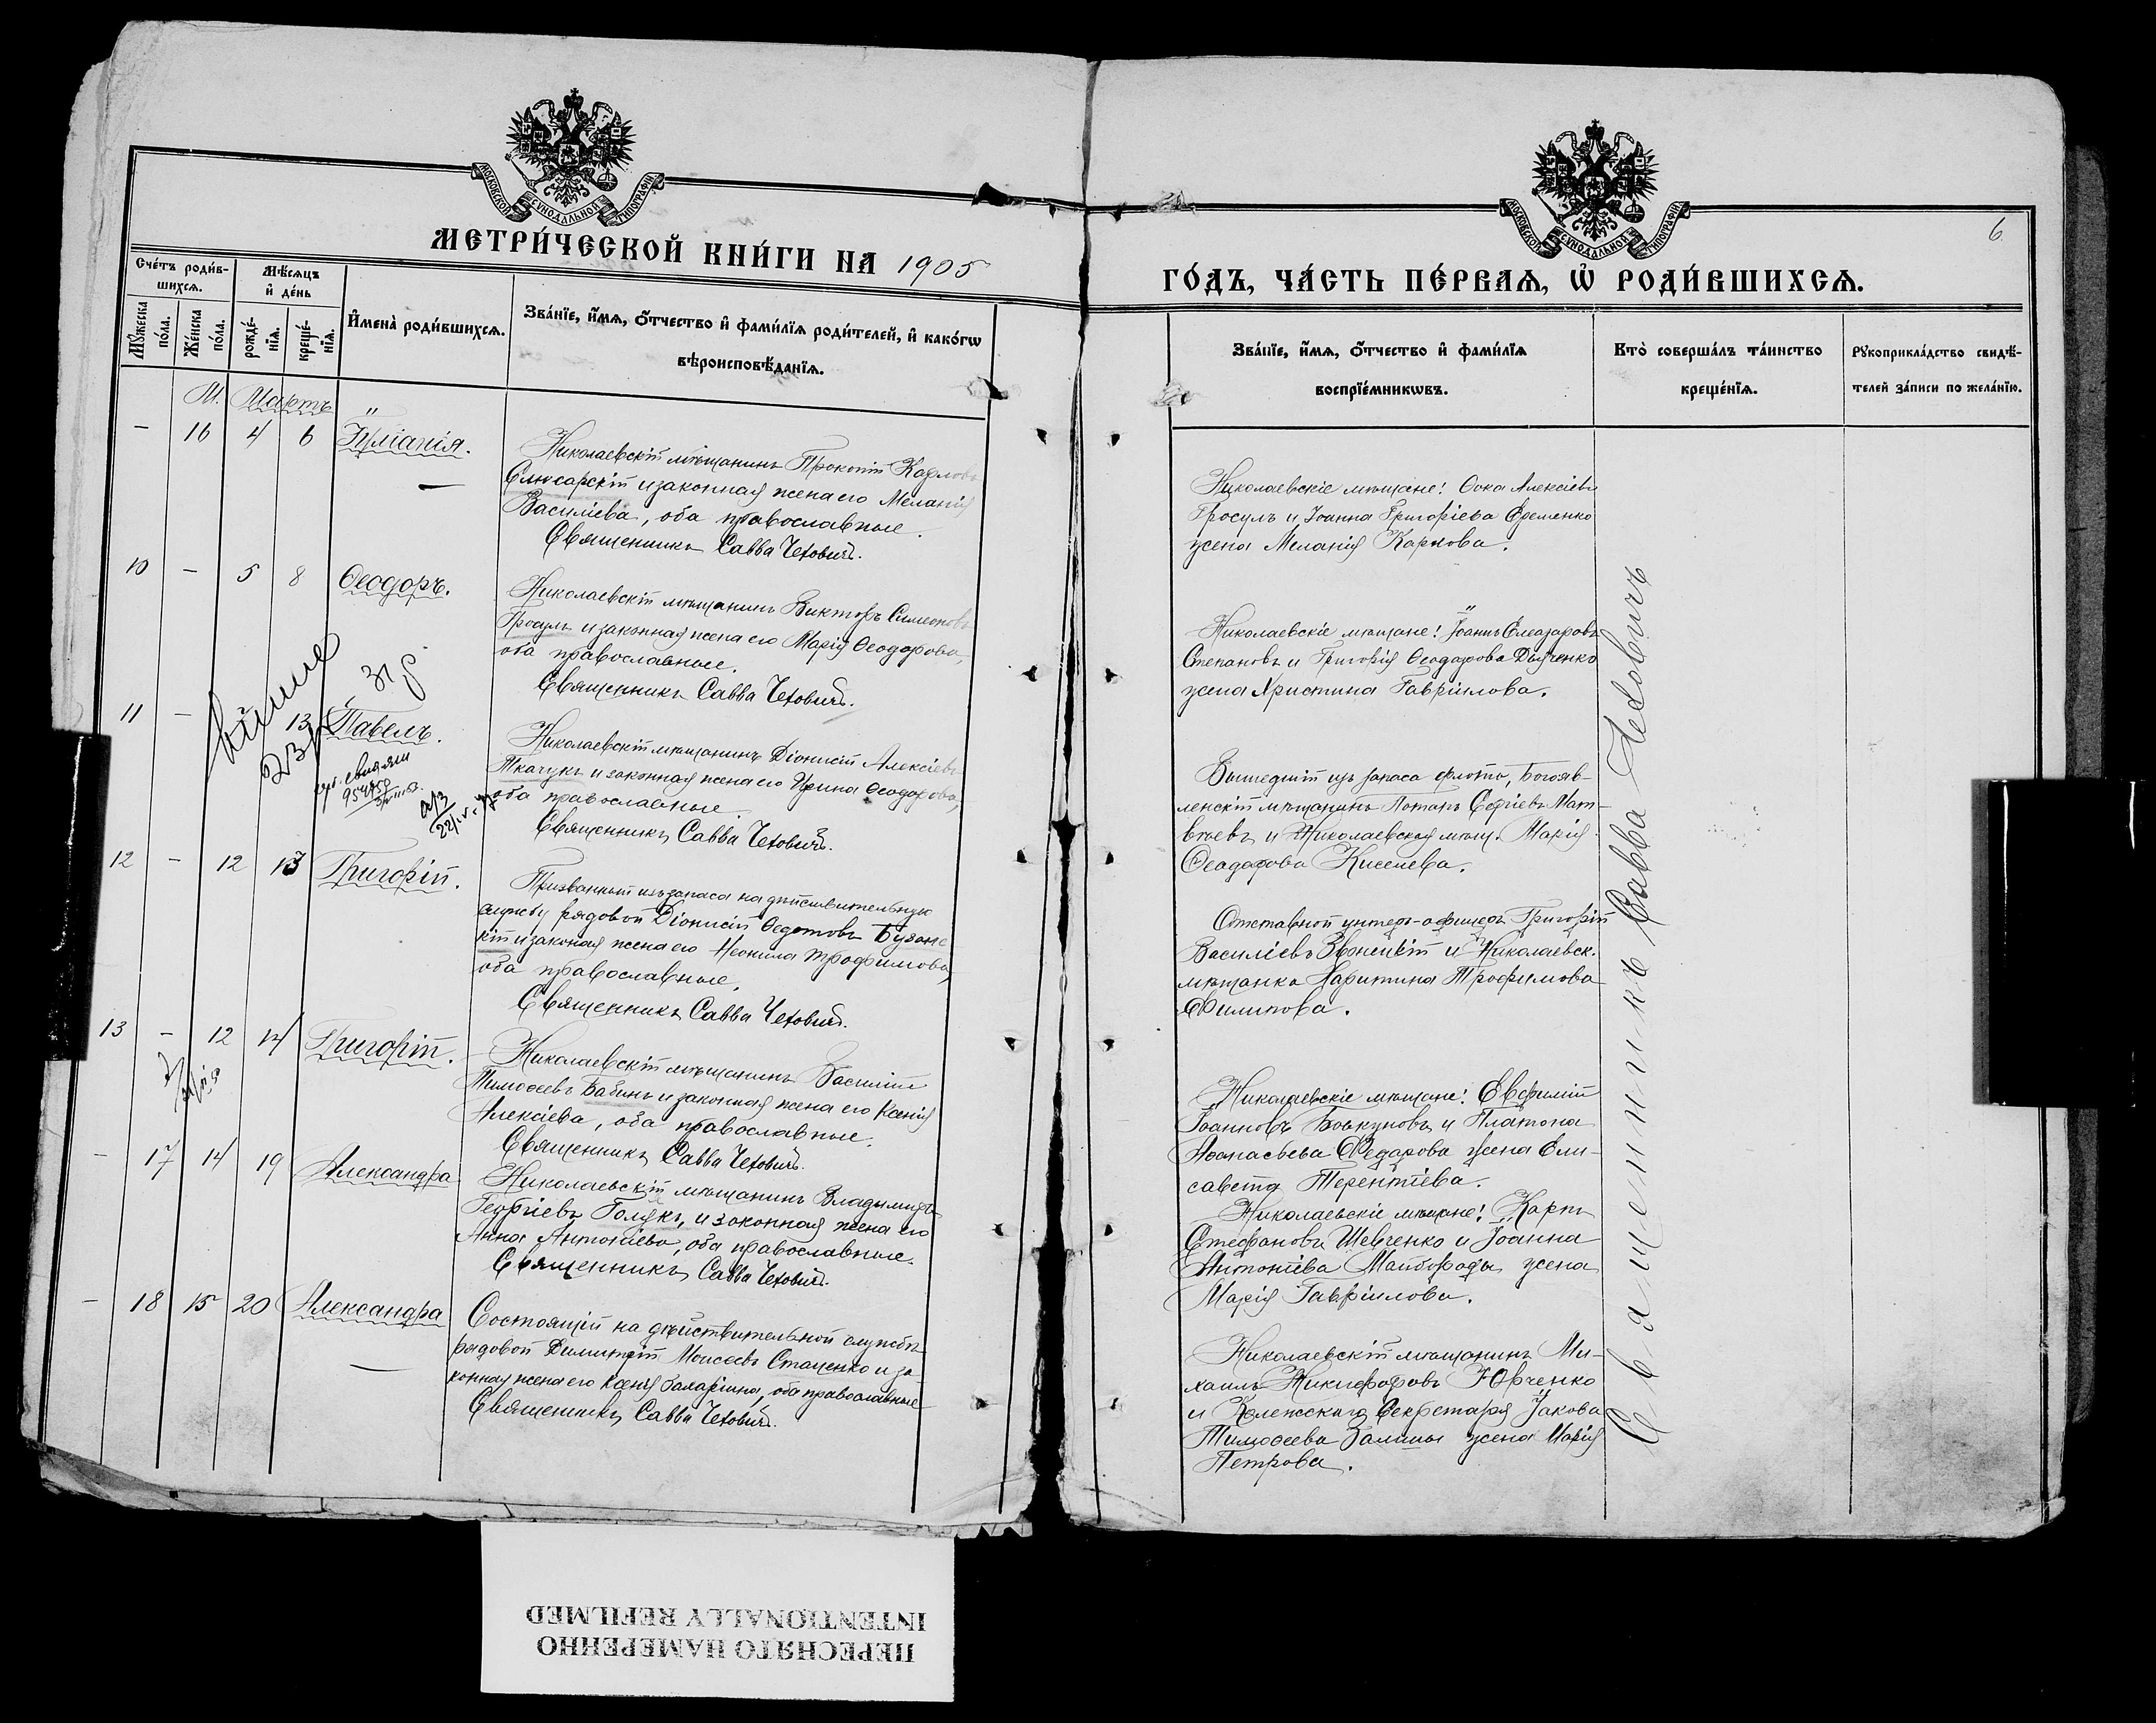 МОСКОВСКОЙ СѴНОДАЛЬНОЙ ТИПОГРАФІИ
МЕТРИ́ЧЕСКОЙ КНИ́ГИ НА 1905
Сче́тъ роди́в-
шихсѧ.
Мѣ́сѧцъ
и҆ де́нь
И҆мена̀ роди́вшихсѧ.
Зва́нїе, и҆́мѧ, ѻ҆́тчество и҆ фами́лїѧ роди́телей, и҆ како́гѡ
вѣроисповѣ́данїѧ.
Мꙋ́жеска
по́ла.
Же́нска
по́ла.
рожде́-
нїѧ.
креще́-
нїѧ.
М. Мартъ
- 16 4 6 Іуліанія.
Николаевскій мѣщанинъ Прокопій Карловъ
Слюсарскій и законная жена его Меланія
Василіева, оба православные.
Священникъ Савва Чехович.
10 - 5 8 Ѳеодоръ.
Николаевскій мѣщанинъ Викторъ Симеоновъ
Гросулъ и законная жена его Марія Ѳеодорова,
оба православные.
Священникъ Савва Чехович.
11 - 13 Павелъ.
Николаевскій мѣщанинъ Діонисій Алексіевъ
Ткачукъ и законная жена его Ирина Ѳеодорова,
оба православные.
Священникъ Савва Чехович.
12 - 12 13 Григорій.
Призванный изъ запаса на дѣйствительную
службу рядовой Діонисій Ѳедотовъ
и законная жена его Неонила Трофимова,
оба православные.
Священникъ Савва Чехович.
13 - 12 14 Григорій.
Николаевскій мѣщанинъ Василій
Тимоѳеевъ Бабинъ и законная жена его Ксенія
Алексіева, оба православные.
Священникъ Савва Чехович.
- 17 14 19 Александра
Николаевскій мѣщанинъ Владимиръ
Георгіевъ Голякъ, и законная жена его
Анна Антоніева, оба православные.
Священникъ Савва Чехович.
- 18 15 20 Александра
Состоящій на дѣйствительной службѣ
рядовой Димитрій Моисеевъ Стаценко и за-
конная жена его Ксенія Захаріина, оба православные
Священникъ Савва Чехович.
6.
МОСКОВСКОЙ СѴНОДАЛЬНОЙ ТИПОГРАФІИ
ГО́ДЪ, ЧА́СТЬ ПЕ́РВАѦ, Ѡ҆ РОДИ́ВШИХСѦ.
Зва́нїе, и҆́мѧ, ѻ҆́тчество и҆ фами́лїѧ
воспрїе́мникѡвъ.
Кто̀ соверша́лъ та́инство
креще́нїѧ.
Рꙋкоприкла́дство свидѣ́-
телей за́писи по жела́нїю.
Николаевскіе мѣщане: Ѳока Алексіевъ
Гросулъ и Іоанна Григоріева Еременко
жена Меланія Карпова.
Николаевскіе мѣщане: Іоаннъ Елеазаровъ
Степановъ и Григорія Ѳеодорова Дьяченко
жена Христина Гавріилова.
Вышедшій изъ запаса флота, Богояв-
ленскій мѣщанинъ Потапъ Сергіевъ Мат-
вѣевъ и Николаевская мѣщ. Марія
Ѳеодорова Киселева.
Отставной унтеръ-офицеръ Григорій
Василіевъ и Николаевск.
мѣщанка Харитина Трофимова
Филипова.
Николаевскіе мѣщане: Евфимій
Іоанновъ Бовкуновъ и Платона
Аѳанасьева Федорова жена Ели-
савета Терентіева.
Николаевскіе мѣщане: Карпъ
Стефановъ Шевченко и Іоанна
Антоніева Майбороды жена
Марія Гавріилова.
Николаевскій мѣщанинъ Ми-
хаилъ Никифоровъ Юрченко
и Колежскаго Секретаря Іакова
Тимоѳеева Залины жена Марія
Петрова.
Священникъ Савва Чеховичъ
ПЕРЕСНЯТО НАМЕРЕННО
INTENTIONALLY REFILMED